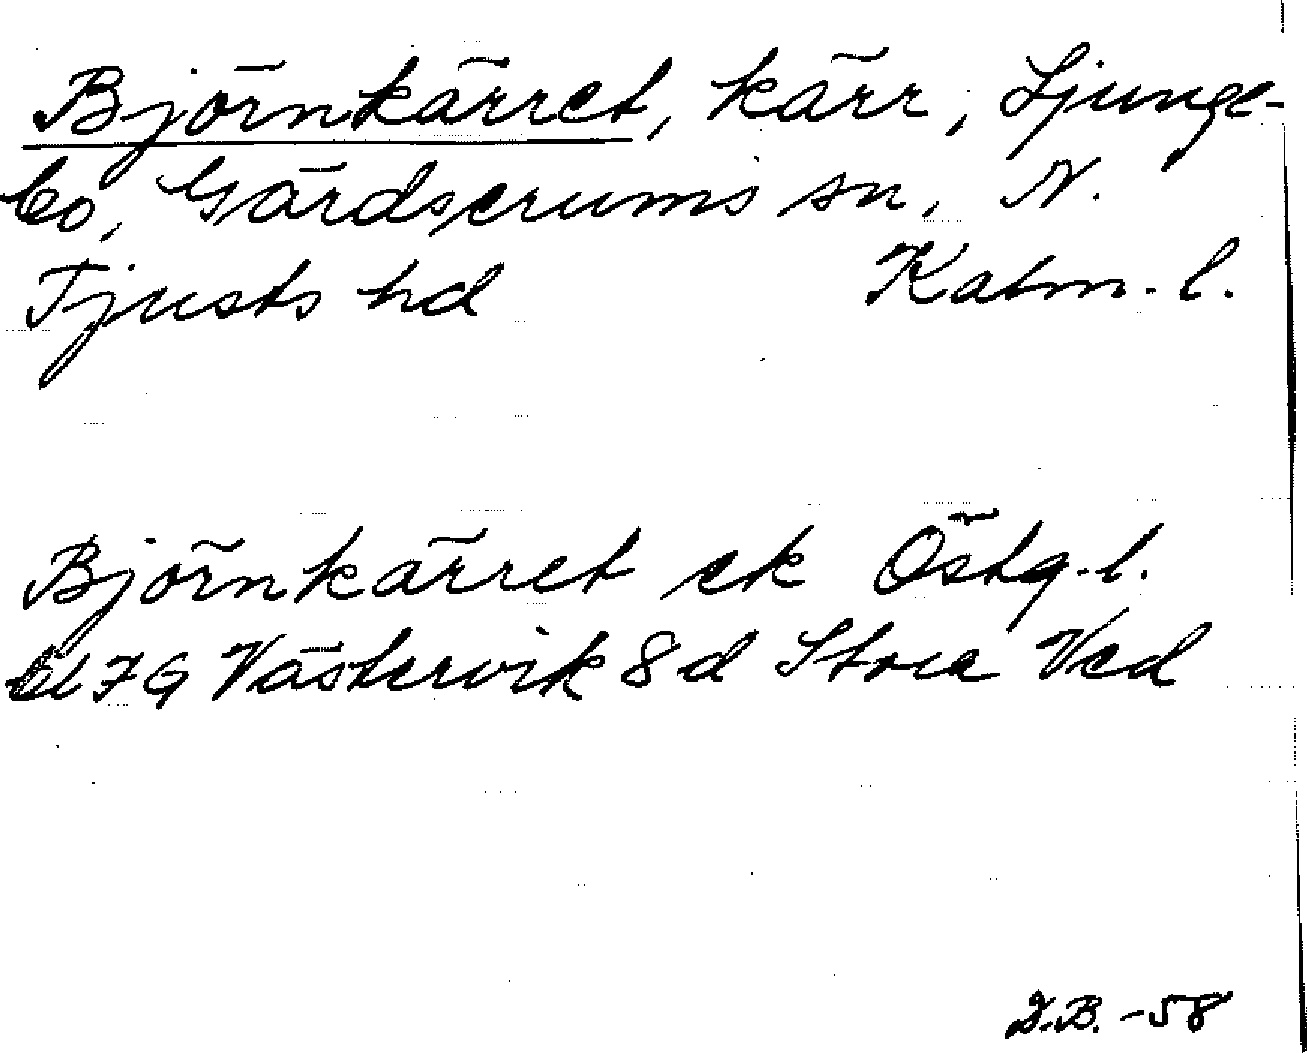 Björnkärret, kärr, Ljunge-
bo, Gärdserums sn, N.
Tjusts hd Kalm. l.
Björnkärret ek Östg. l.
bl 7 G Västervik 8 d Stora Ved
D.B. -58